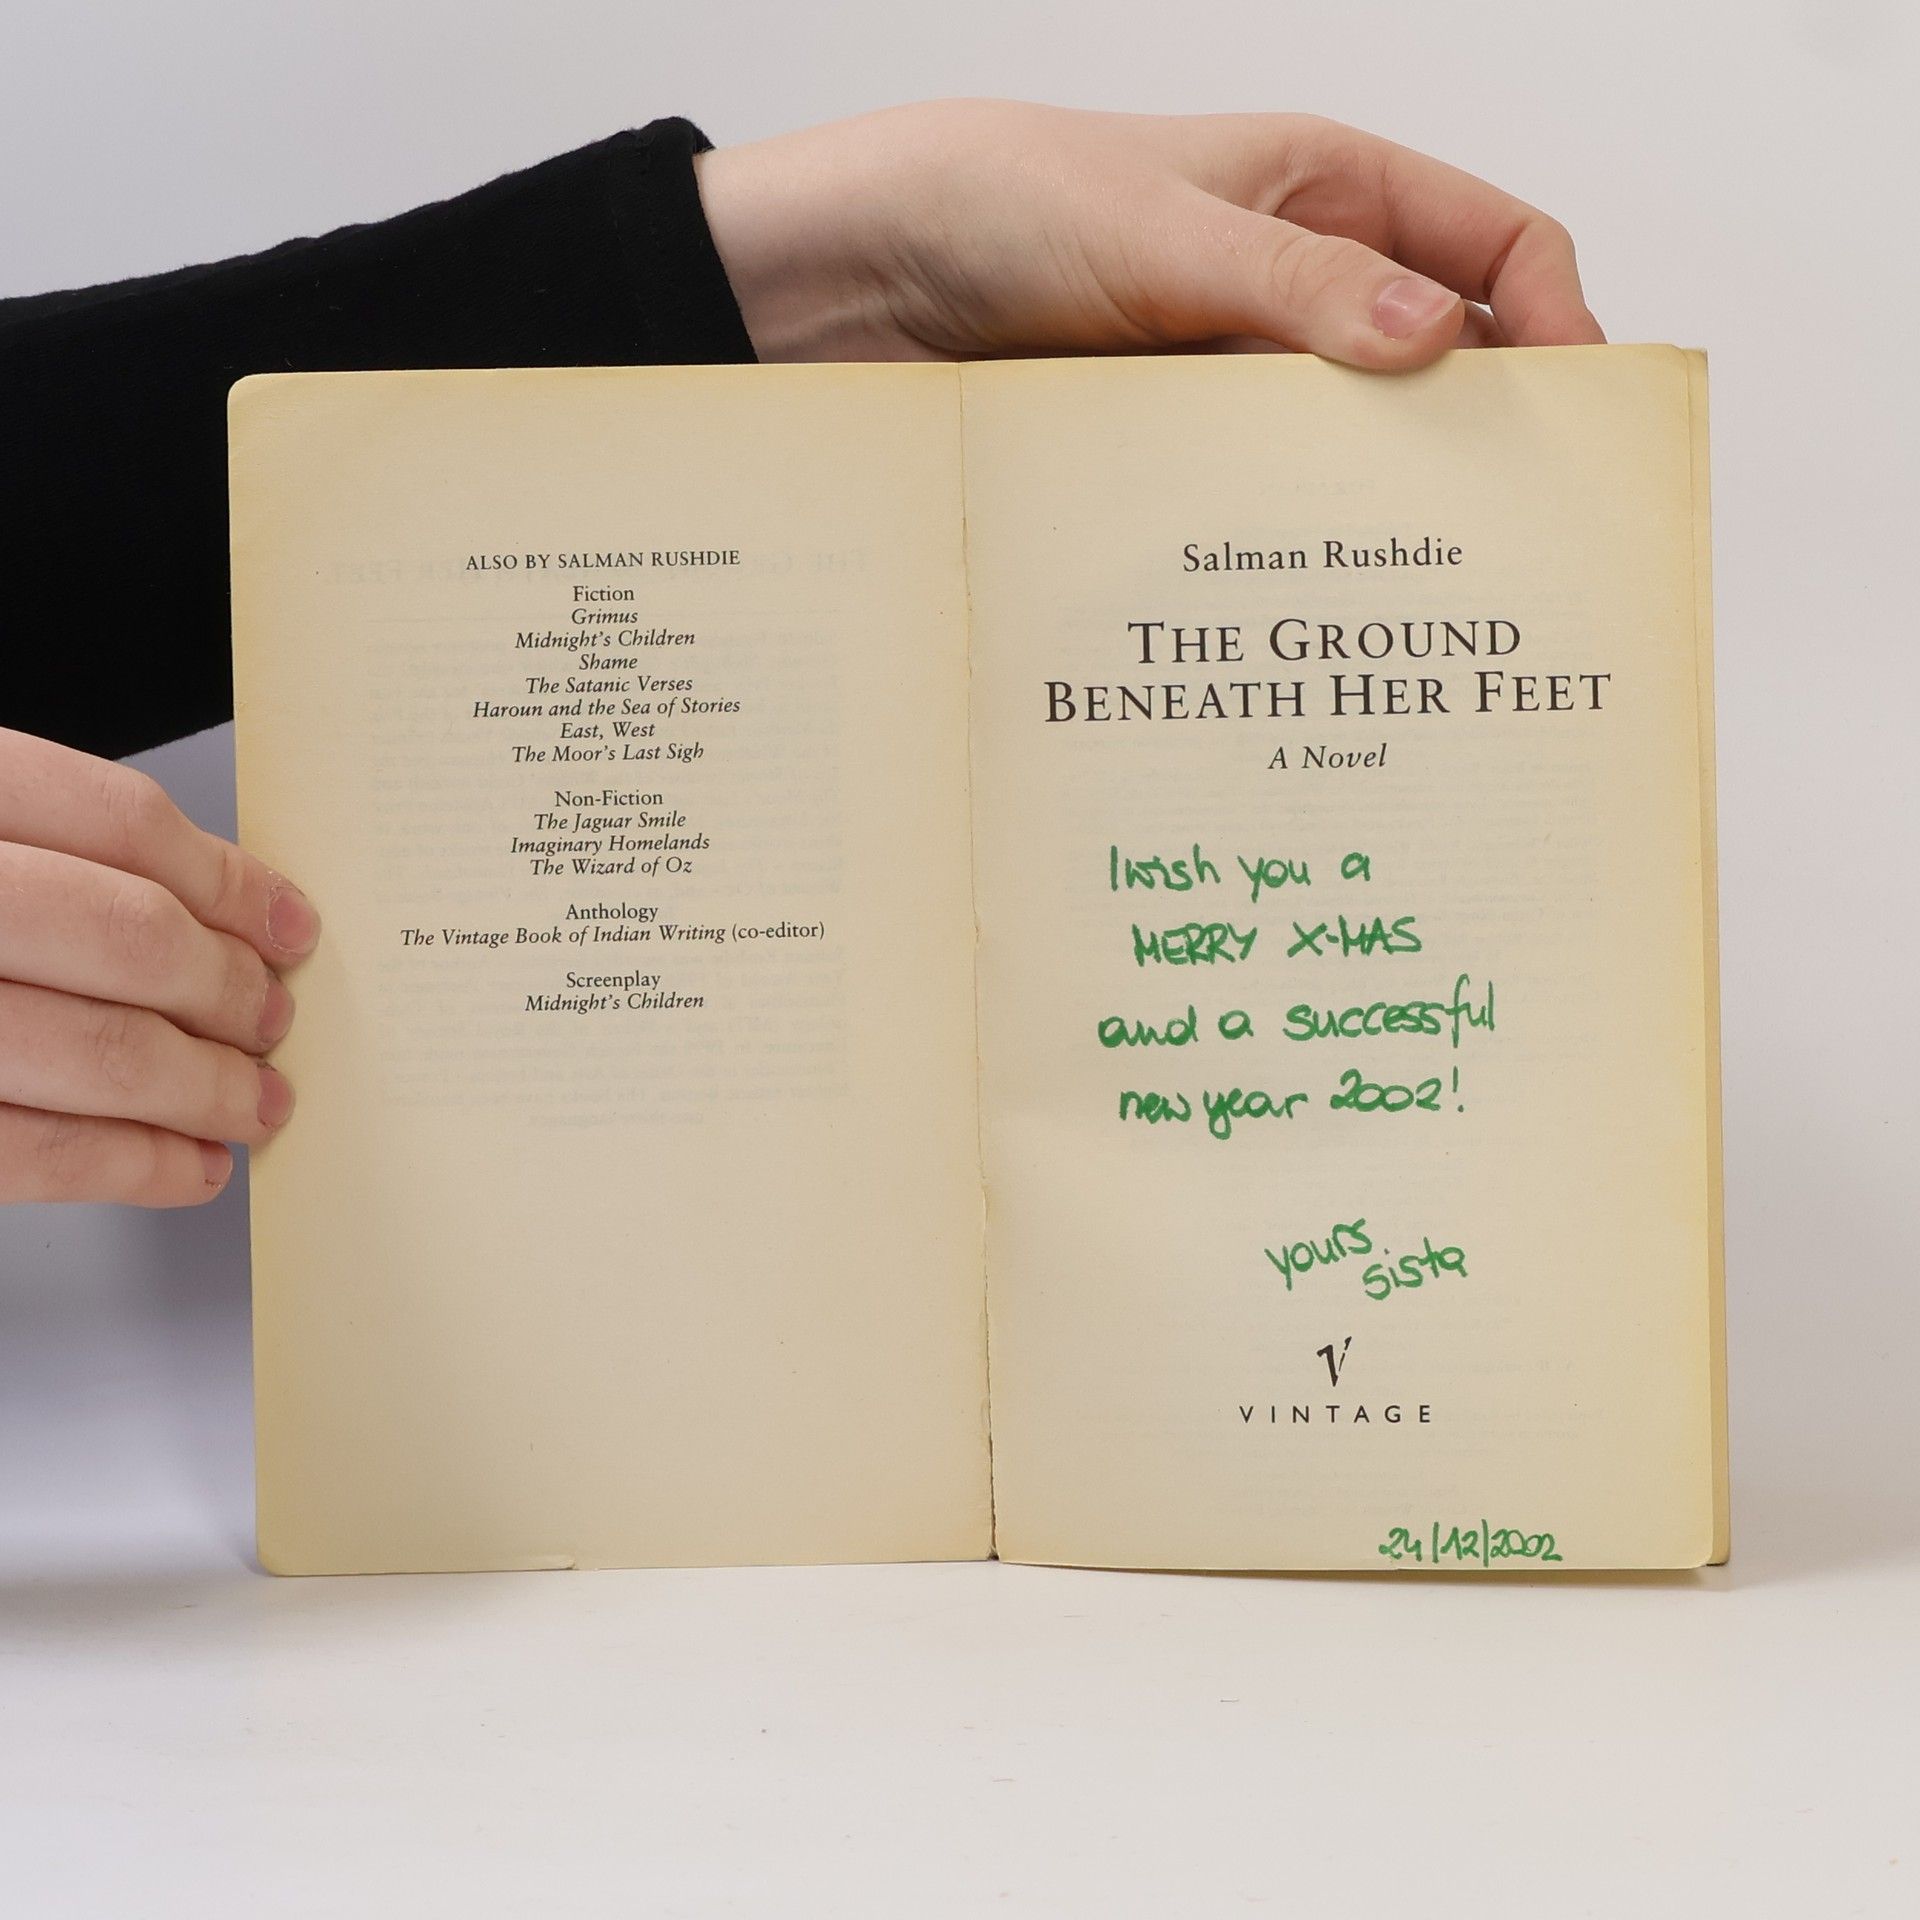 ALSO BY SALMAN RUSHDIE
Fiction
Grimus
Midnight's Children
Shame
The Satanic Verses
Haroun and the Sea of Stories
East, West
The Moor's Last Sigh
Non-Fiction
The Jaguar Smile
Imaginary Homelands
The Wizard of Oz
Anthology
The Vintage Book of Indian Writing (co-editor)
Screenplay
Midnight's Children
Salman Rushdie
THE GROUND
BENEATH HER FEET
A Novel
I wish you a
MERRY X-MAS
and a successful
new year 2002!
yours
sista
VINTAGE
24/12/2002